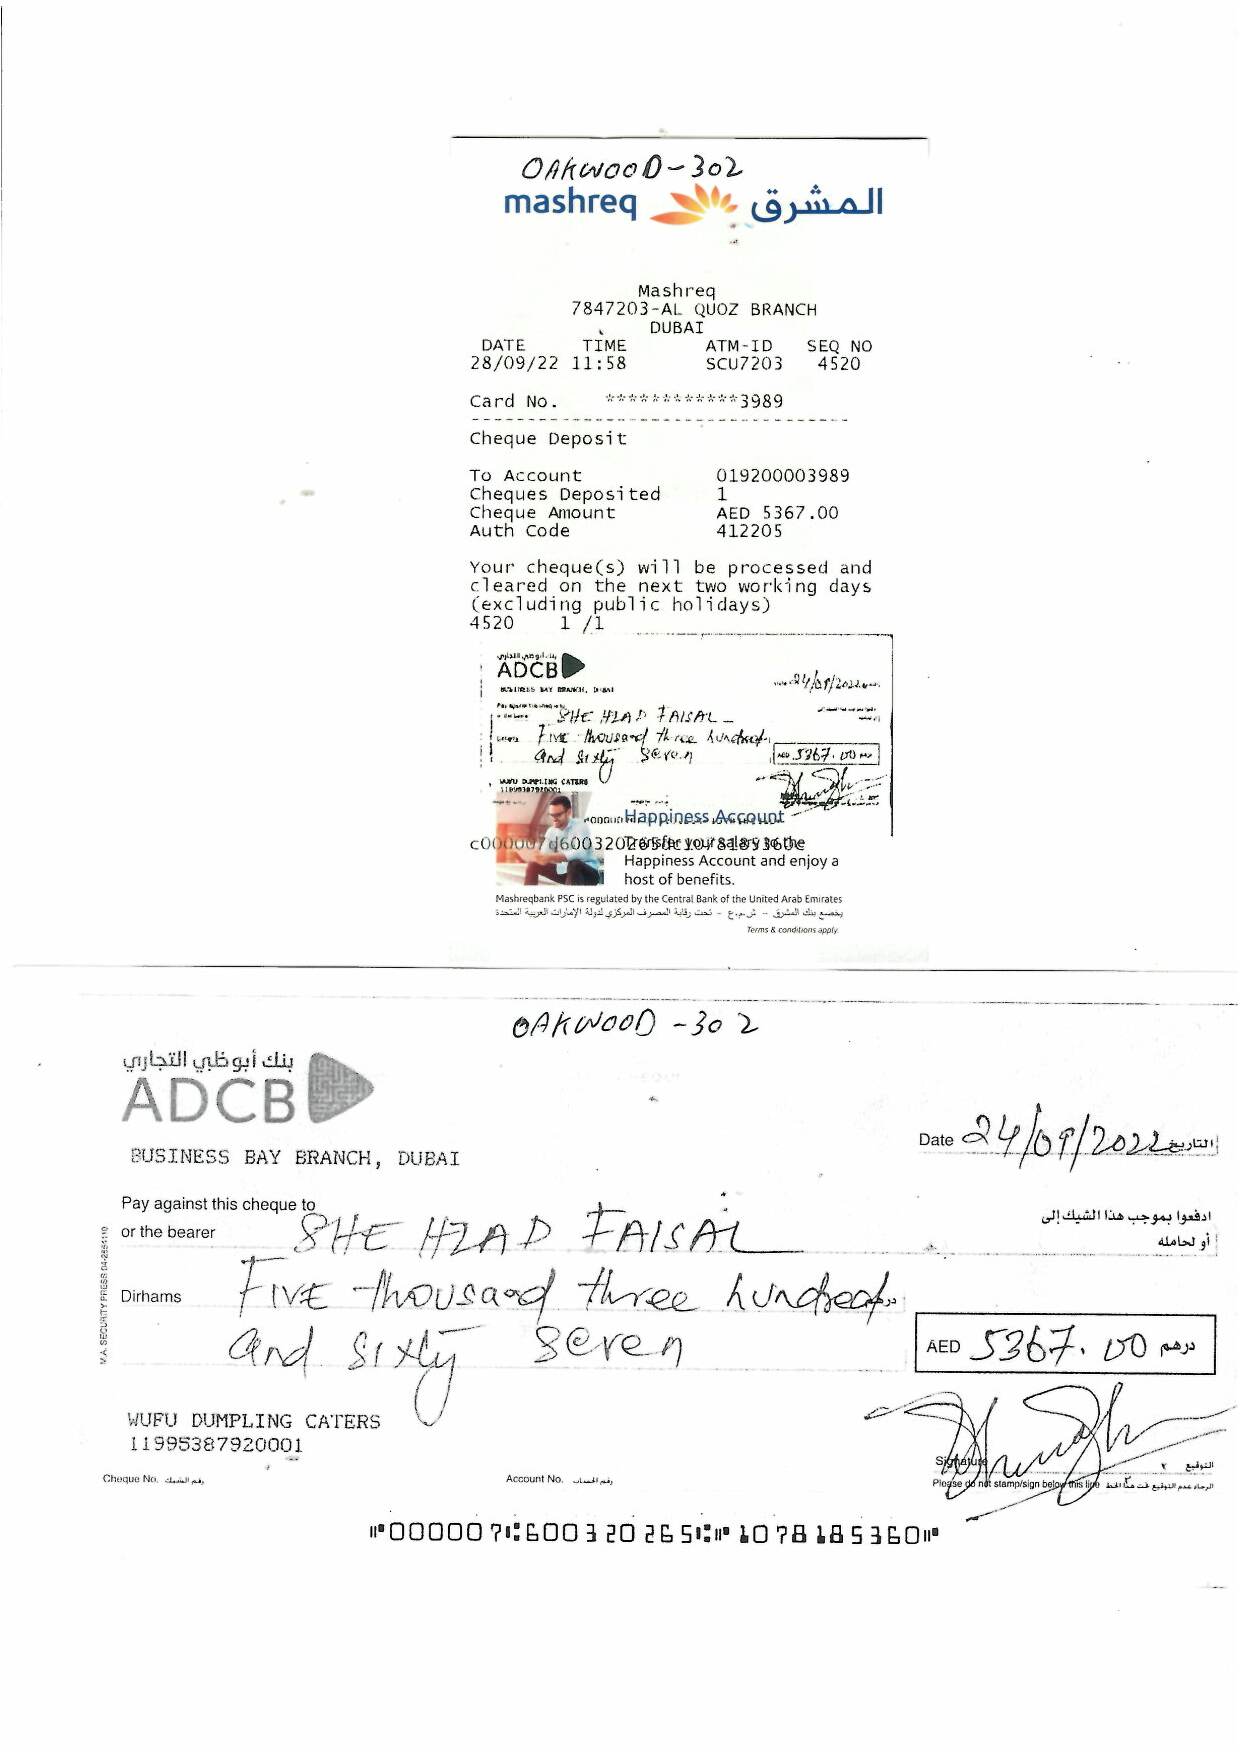 OAKWOOD-302
mashreq المشرق
Mashreq
7847203-AL QUOZ BRANCH
DUBAI
DATE TIME ATM-ID SEQ NO
28/09/22 11:58 SCU7203 4520
Card No. ************3989
Cheque Deposit
To Account 019200003989
Cheques Deposited 1
Cheque Amount AED 5367.00
Auth Code 412205
Your cheque(s) will be processed and
cleared on the next two working days
(excluding public holidays)
4520 1 /1
بنك أبوظبي التجاري
ADCB
BUSINESS BAY BRANCH, DUBAI
24/09/2022
SHEHZAD FAISAL
Five thousand three hundred
and sixty seven
AED 5367.00
WUFU DUMPLING CATERS
11995387920001
Happiness Account
Transfer your salary to the
Happiness Account and enjoy a
host of benefits.
Mashreqbank PSC is regulated by the Central Bank of the United Arab Emirates
يخضع بنك المشرق - ش.م.ع - تحت رقابة المصرف المركزي لدولة الإمارات العربية المتحدة
Terms & conditions apply.
OAKWOOD-302
بنك أبوظبي التجاري
ADCB
BUSINESS BAY BRANCH, DUBAI
Date 24/09/2022 التاريخ
Pay against this cheque to
or the bearer SHEHZAD FAISAL
ادفعوا بموجب هذا الشيك إلى
أو لحامله
Dirhams Five thousand three hundred
and sixty seven
AED 5367.00 درهم
WUFU DUMPLING CATERS
11995387920001
Cheque No. رقم الشيك
Account No. رقم الحساب
Signature التوقيع
Please do not stamp/sign below this line الرجاء عدم التوقيع تحت هذا الخط
M.A. SECURITY PRESS
⑈000007⑆600320265⑆⑈1078185360⑈